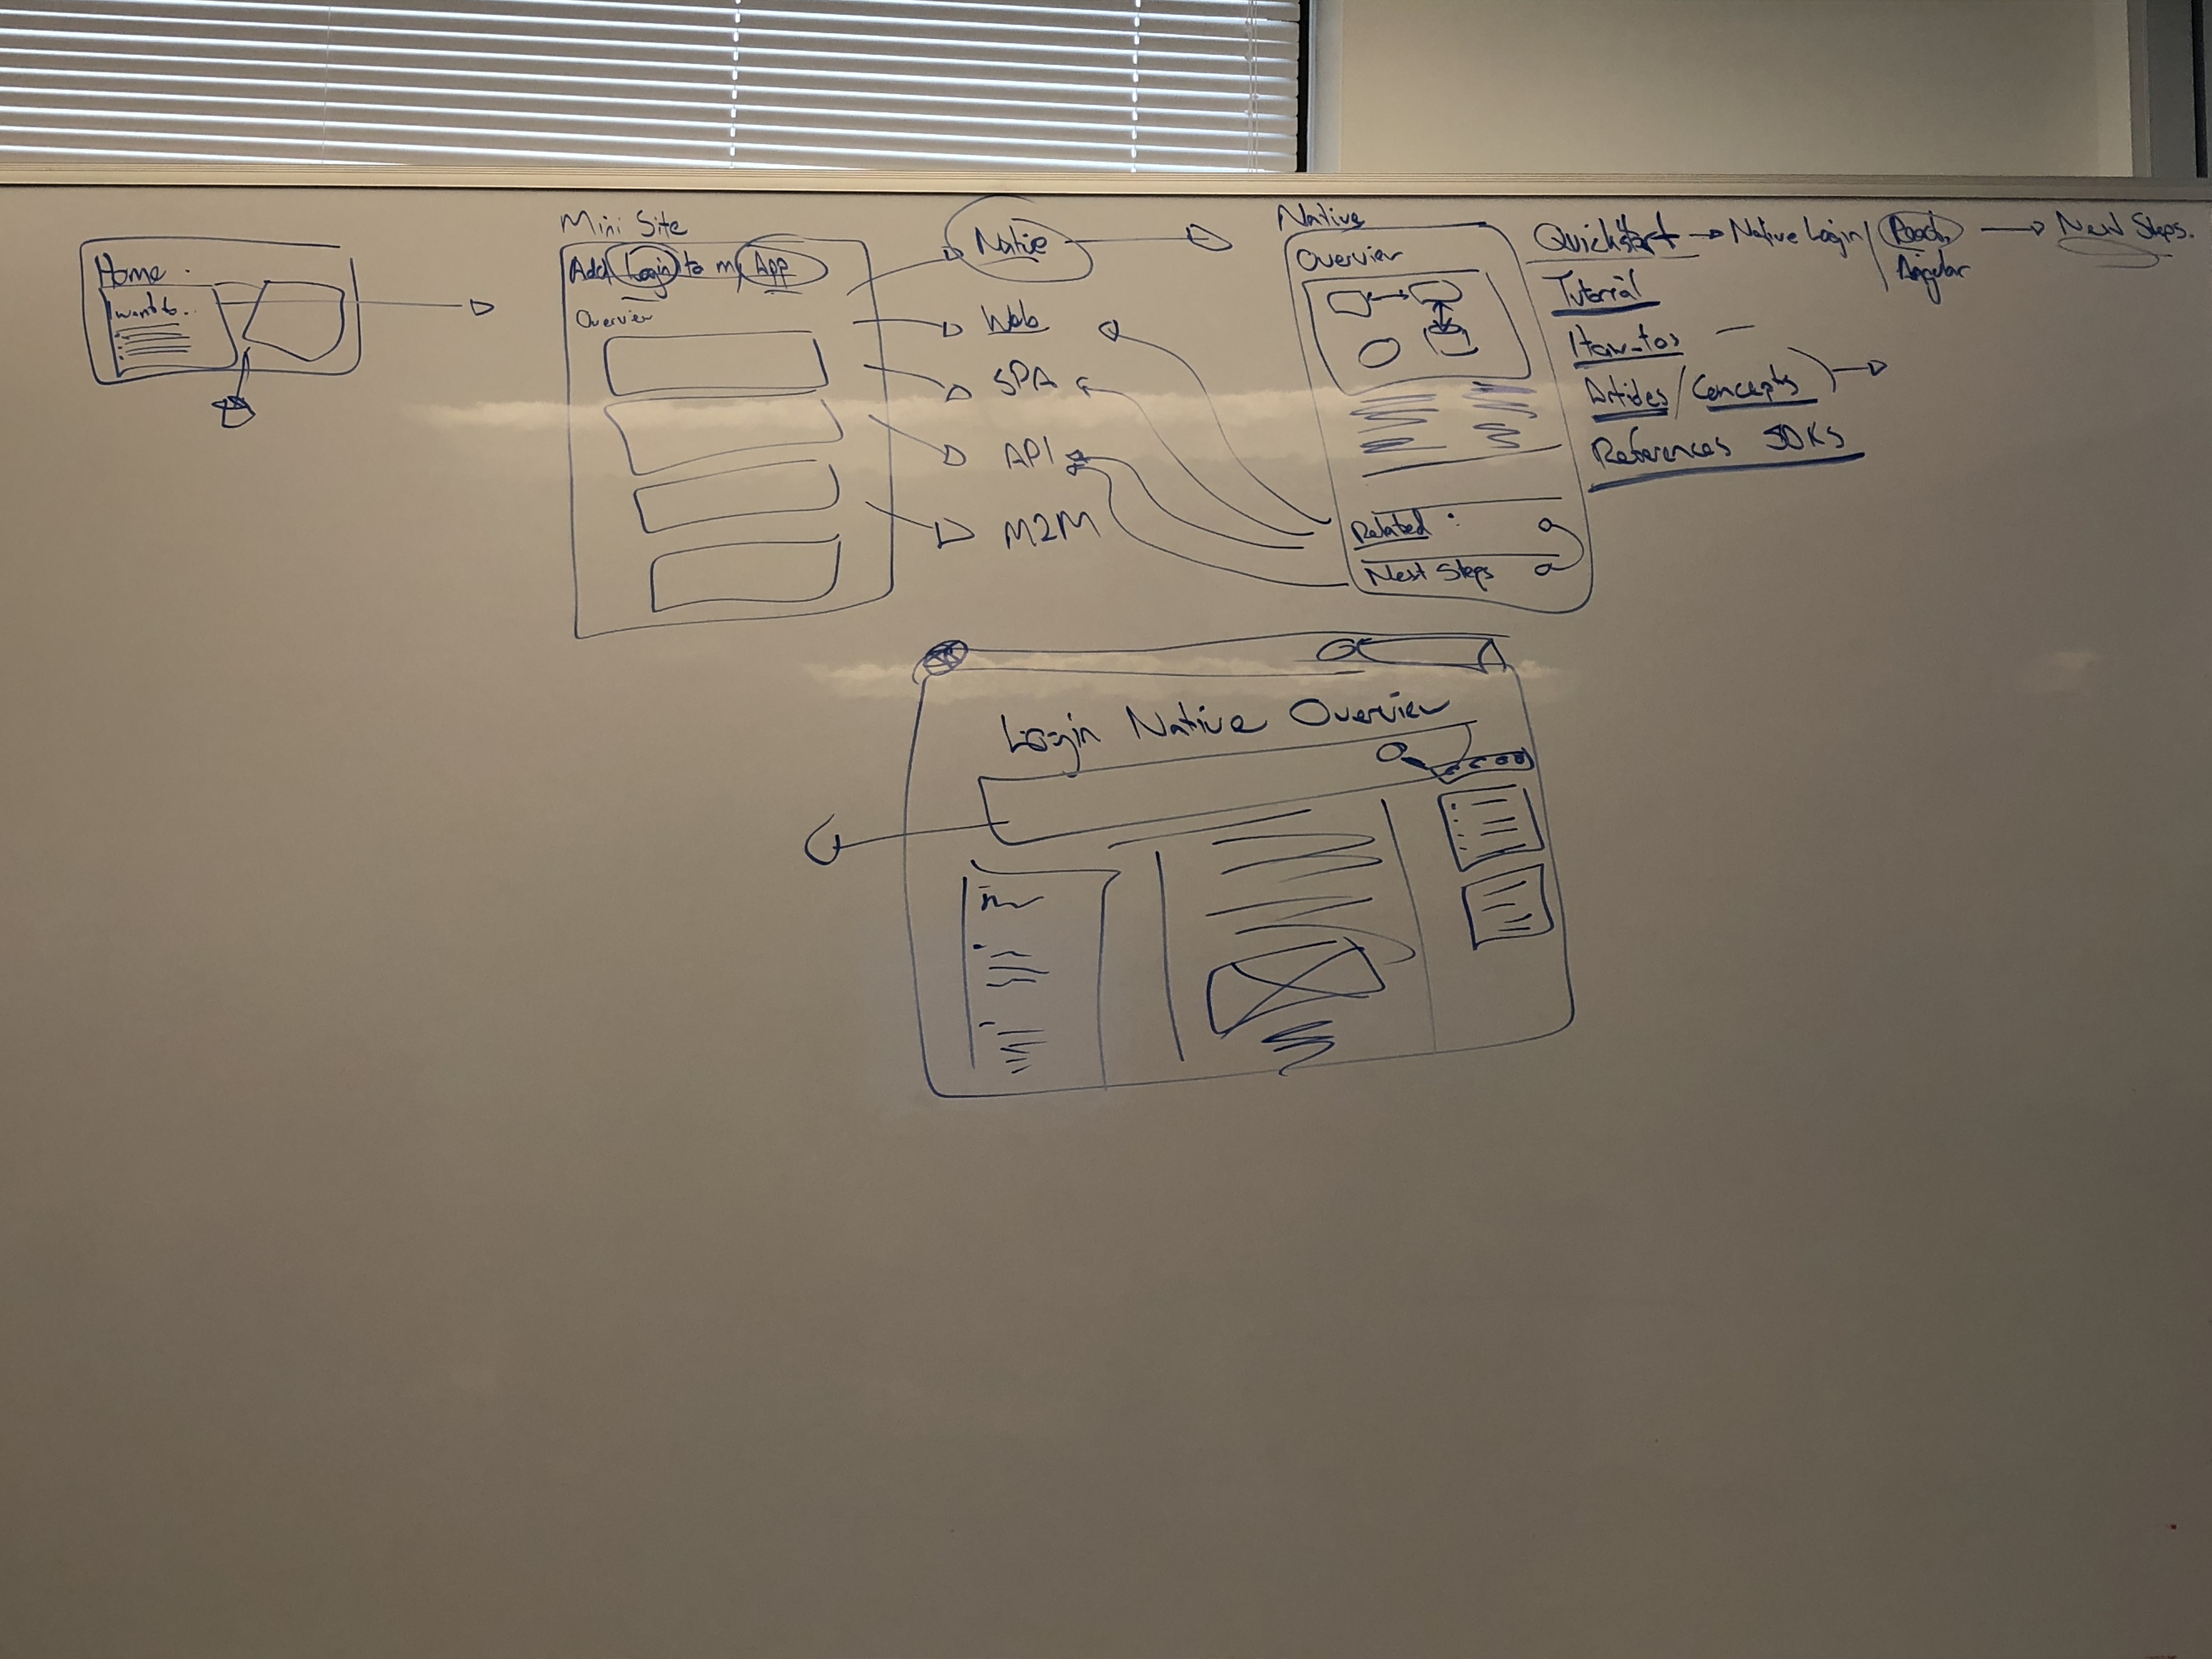 Home.
I want to..
Mini Site
Add Login to my App
Overview
Native
Web
SPA
API
M2M
Native
Overview
Related:
Next Steps
Quickstart → Native Login /
Angular
Tutorial
How-tos
Articles / Concepts
References SDKs
Steps.
Login Native Overview